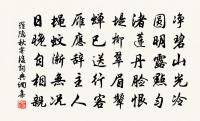 淨碧山光冷
圓明露點勻
渚蓮丹臉恨
堤柳翠眉顰
蟬已送行客
雁應辭主人
蠅蚊漸無況
日晚自相親
羅隱秋霽後詞典網書